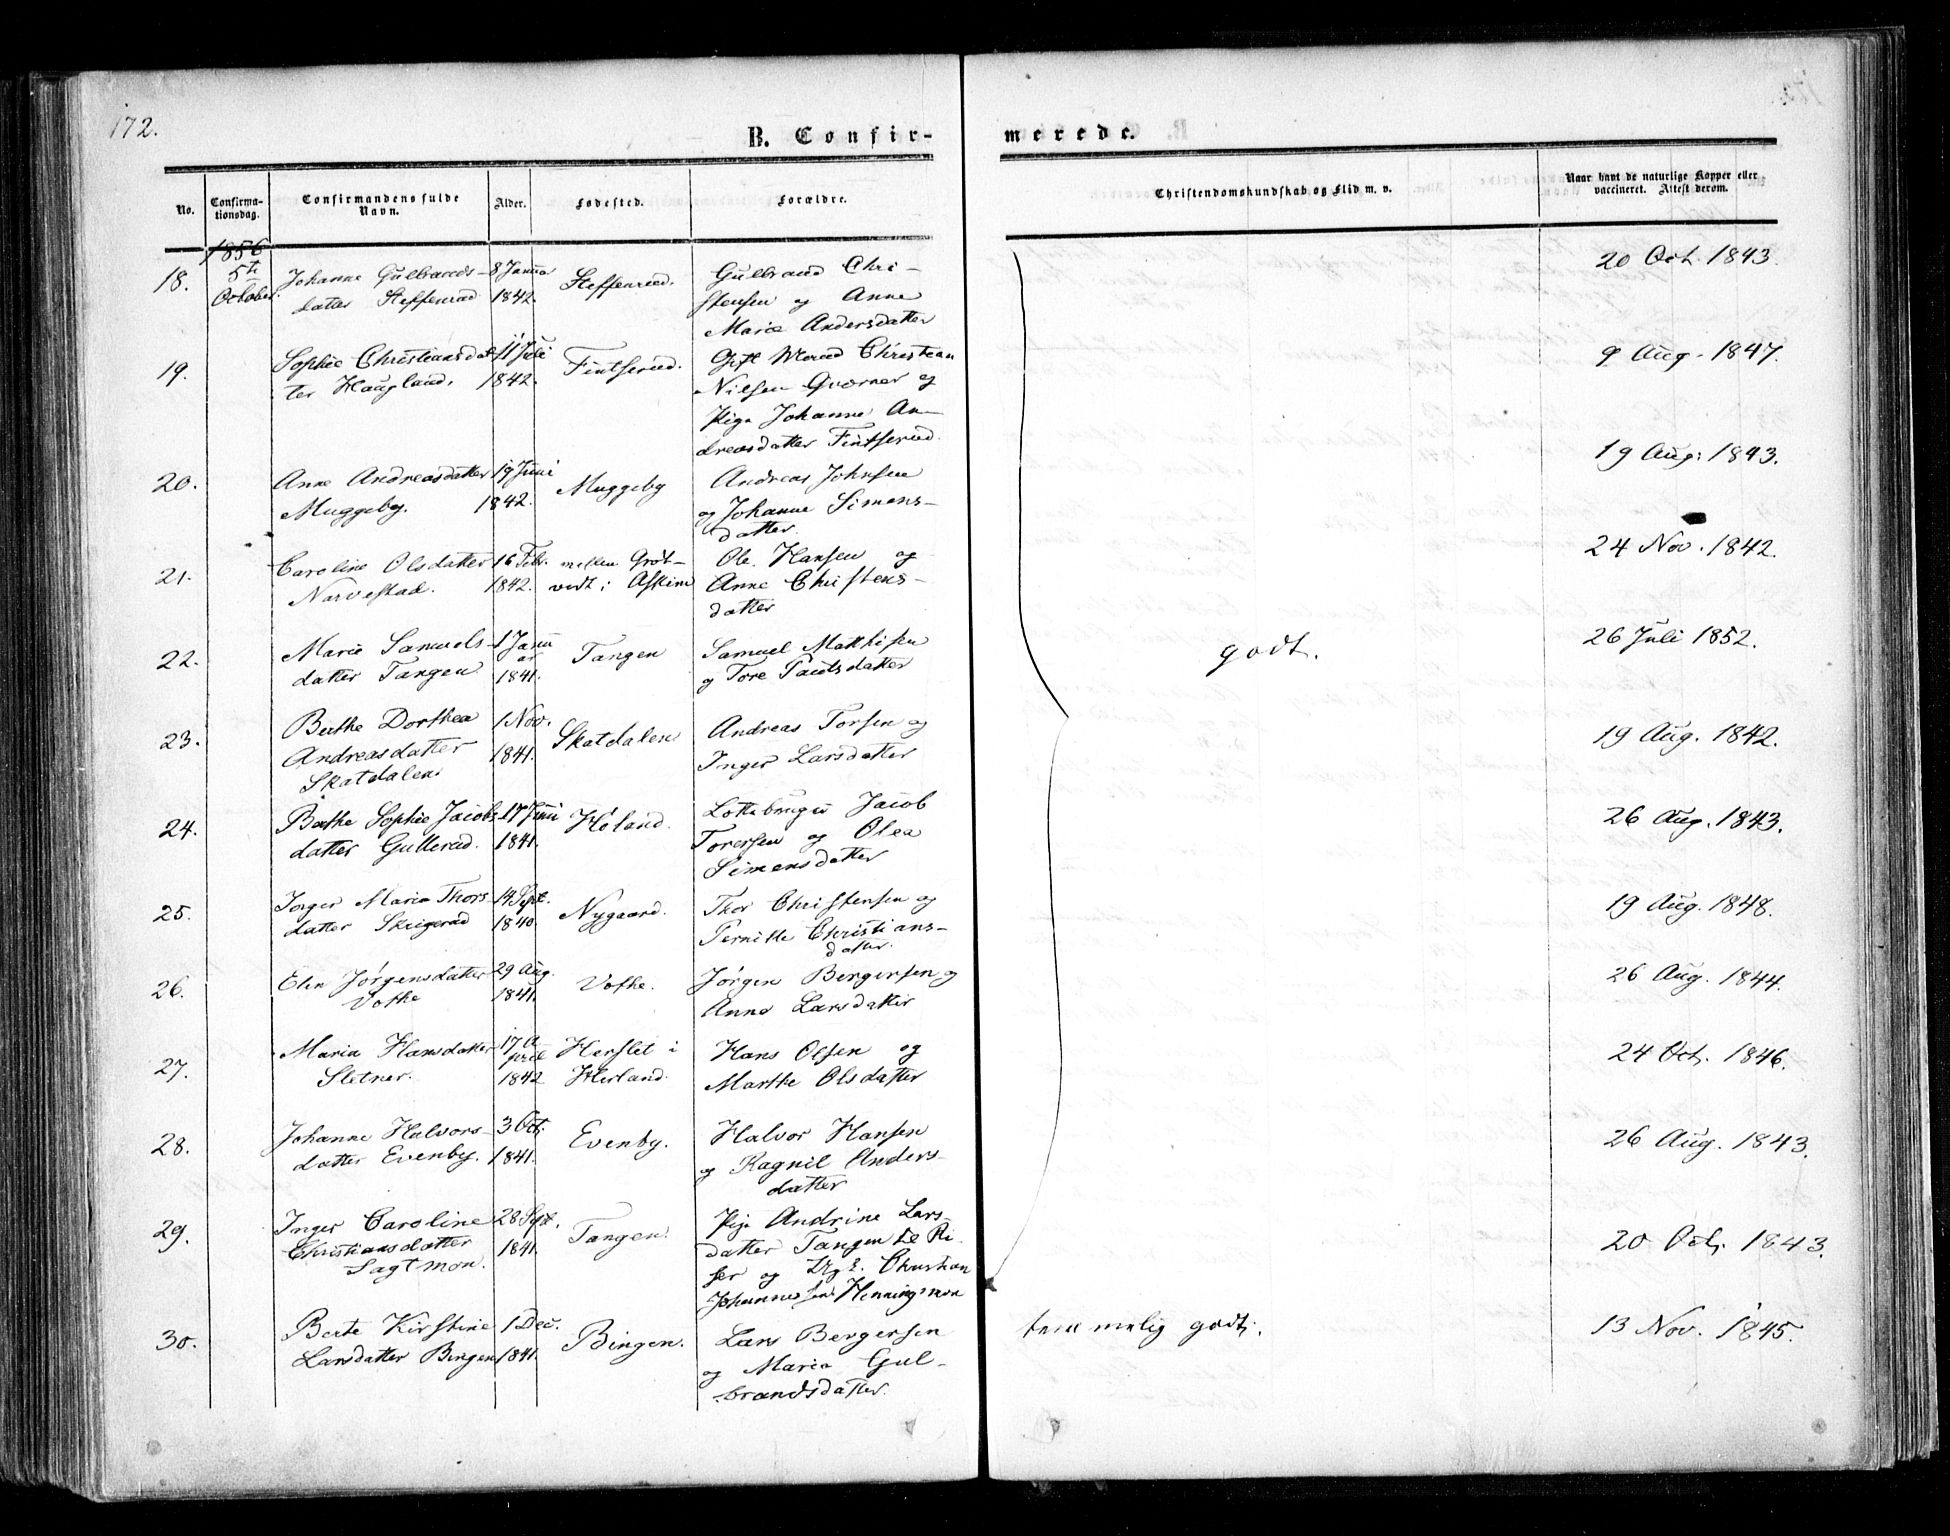 172.
B. Confir-
merede.
No.
Confirma-
tionsdag.
Confirmandens fulde
Navn.
Alder.
Fødested.
Forældre.
Christendomskundskab og Flid m. v.
Naar havt de naturlige Kopper eller
vaccineret. Attest derom.
1856
18. 5te Johanne Gulbrands- 8 Janua Steffenrud. Gulbrand Chri-
October. datter Steffenrud 1842. stensen og Anne
Marie Andersdatter
20 Oct. 1843.
19. Sophie Christiansdat- 11 Juli Fintserud. Gift Mand Christian
ter Haugland. 1842. Nilsen Qværner og
Pige Johanne An-
dreasdatter Fintserud.
9 Aug. 1847.
20. Anne Andreasdatter 19 Juni Muggeby Andreas Johnsen
Muggeby. 1842. og Johanne Simens-
datter
19 Aug. 1843.
21. Caroline Olsdatter 16 Febr. mellem Grøt- Ole Hansen og
Narvestad. 1842. vedt i Askim Anne Christens-
datter
24 Nov. 1842.
22. Marie Samuels- 1 Janu Tangen Samuel Matthisen
ar
datter Tangen 1841. og Tore Paulsdatter
godt.
26 Juli 1852.
23. Berthe Dorthea 1 Nov. Skatdalen Andreas Torsen og
Andreasdatter 1841. Inger Larsdatter
Skatdalen
19 Aug. 1842.
24. Berthe Sophie Jacobs- 17 Juni Høland. Lottebruger Jacob
datter Gullerud. 1841. Torersen og Olea
Simensdatter
26 Aug. 1843.
25. Inger Maria Thors 14 Sept. Nygaard. Thor Christensen og
datter Skiegerud 1840. Pernille Christians-
datter.
19 Aug. 1848.
26. Elen Jørgensdatter 29 Aug. Vothe. Jørgen Bergersen og
Vothe 1841. Anne Larsdatter
26 Aug. 1844.
27. Maria Hansdatter 17 A Herslet i Hans Olsen og
pril
Sletner. 1842 Herland. Marthe Olsdatter
24 Oct. 1846.
28. Johanne Halvors- 3 Oct. Evenby. Halvor Hansen
datter Evenby. 1841. og Ragnil Anders-
datter
26 Aug. 1843.
29. Inger Caroline 28 Sept. Tangen. Pige Andrine Lars-
Christiansdatter 1841. datter Tangen
Sagtmon. ser og Ungk. Christian
Johannessen Henningsmon
20 Oct. 1843.
30. Berte Kirstine 1 Dec. Bingen. Lars Bergersen
Larsdatter Bingen 1841. og Maria Gul-
brandsdatter.
temmelig godt.
13 Nov. 1845.